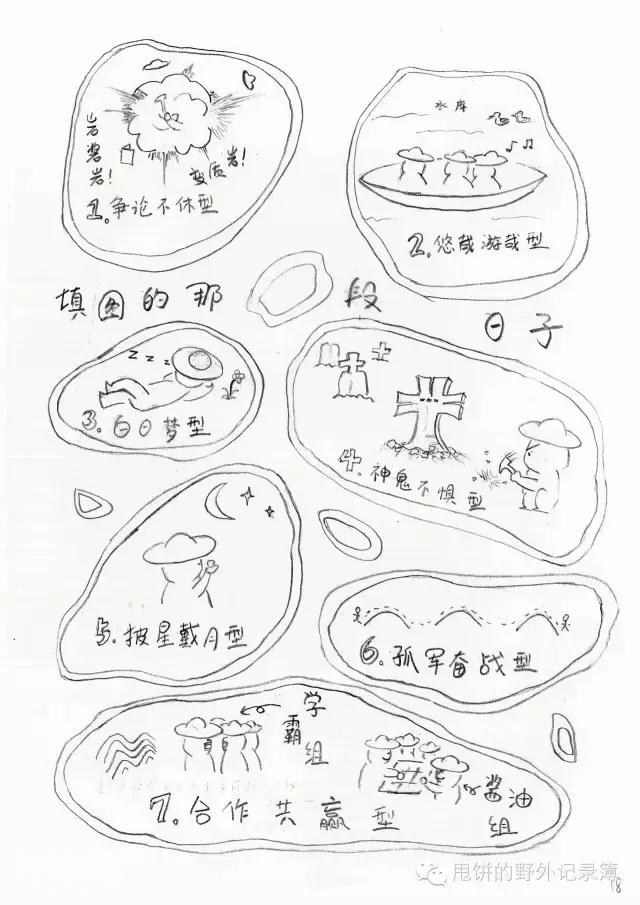 岩浆岩!
变质岩!
1.争论不休型
水库
2.悠哉游哉型
填图的那段日子
zzz
3.白日梦型
4.神鬼不惧型
5.披星戴月型
6.孤军奋战型
学霸组
酱油组
7.合作共赢型
甩饼的野外记录簿
18